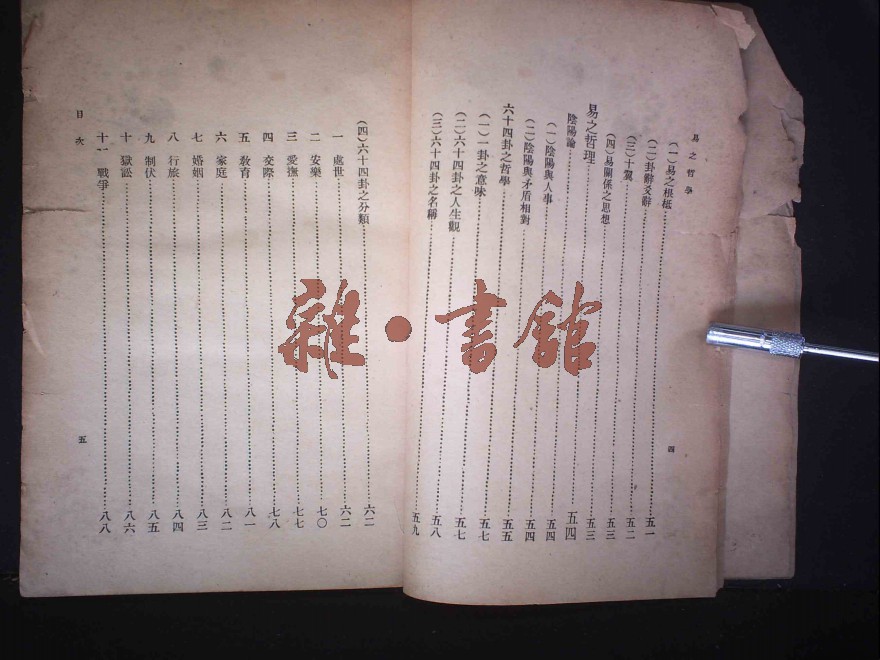 易之哲學
(一)易之根柢……五一
(二)卦辭爻辭……五二
(三)十翼……五三
(四)易關係之思想……五三
易之哲理……五四
陰陽論……五四
(一)陰陽與人事……五四
(二)陰陽與矛盾相對……五五
六十四卦之哲學……五七
(一)一卦之意味……五七
(二)六十四卦之人生觀……五八
(三)六十四卦之名稱……五九
四
(四)六十四卦之分類……六二
一 處世……六二
二 安樂……七〇
三 愛撫……七七
四 交際……七八
五 教育……八一
六 家庭……八二
七 婚姻……八三
八 行旅……八四
九 制伏……八五
十 獄訟……八六
十一 戰爭……八八
目次
五
雜·書館